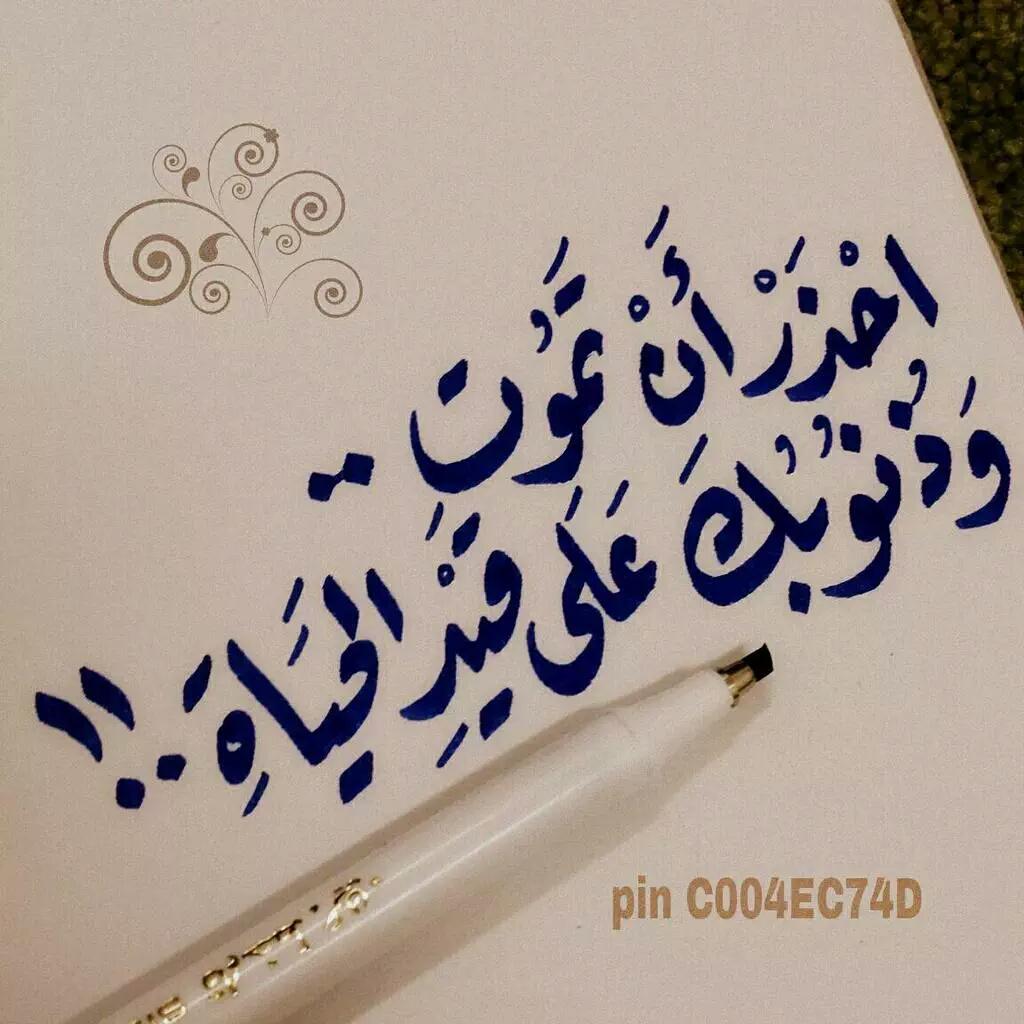 احْذَرْ أَنْ تَمُوت ..
وَذُنُوْبُكَ عَلَى قَيْدِ الحَيَاةِ ..!!
pin C004EC74D